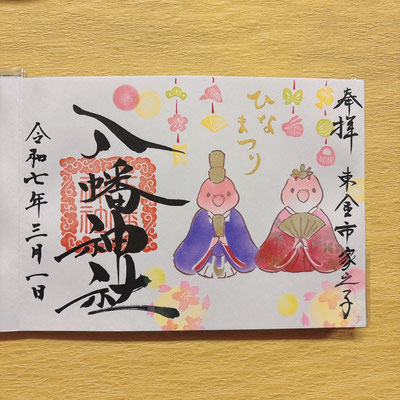 奉拝 東金市家之子
ひな
まつり
八幡神社
令和七年三月一日